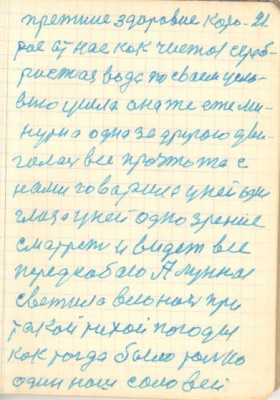 прежние здоровие кото- 21.
рое от нас как чистая сереб-
ристая вода по своем усло-
вию ушла она же еже ми-
нутна одна за другою дви-
галась все прочь та с
нами говарила у ней одн
глаза у ней одно зрение
сматрет и видет все
перед собаю А луння
светила всю ноч при
такой тихой погоды
как тогда было только
один наш соловей